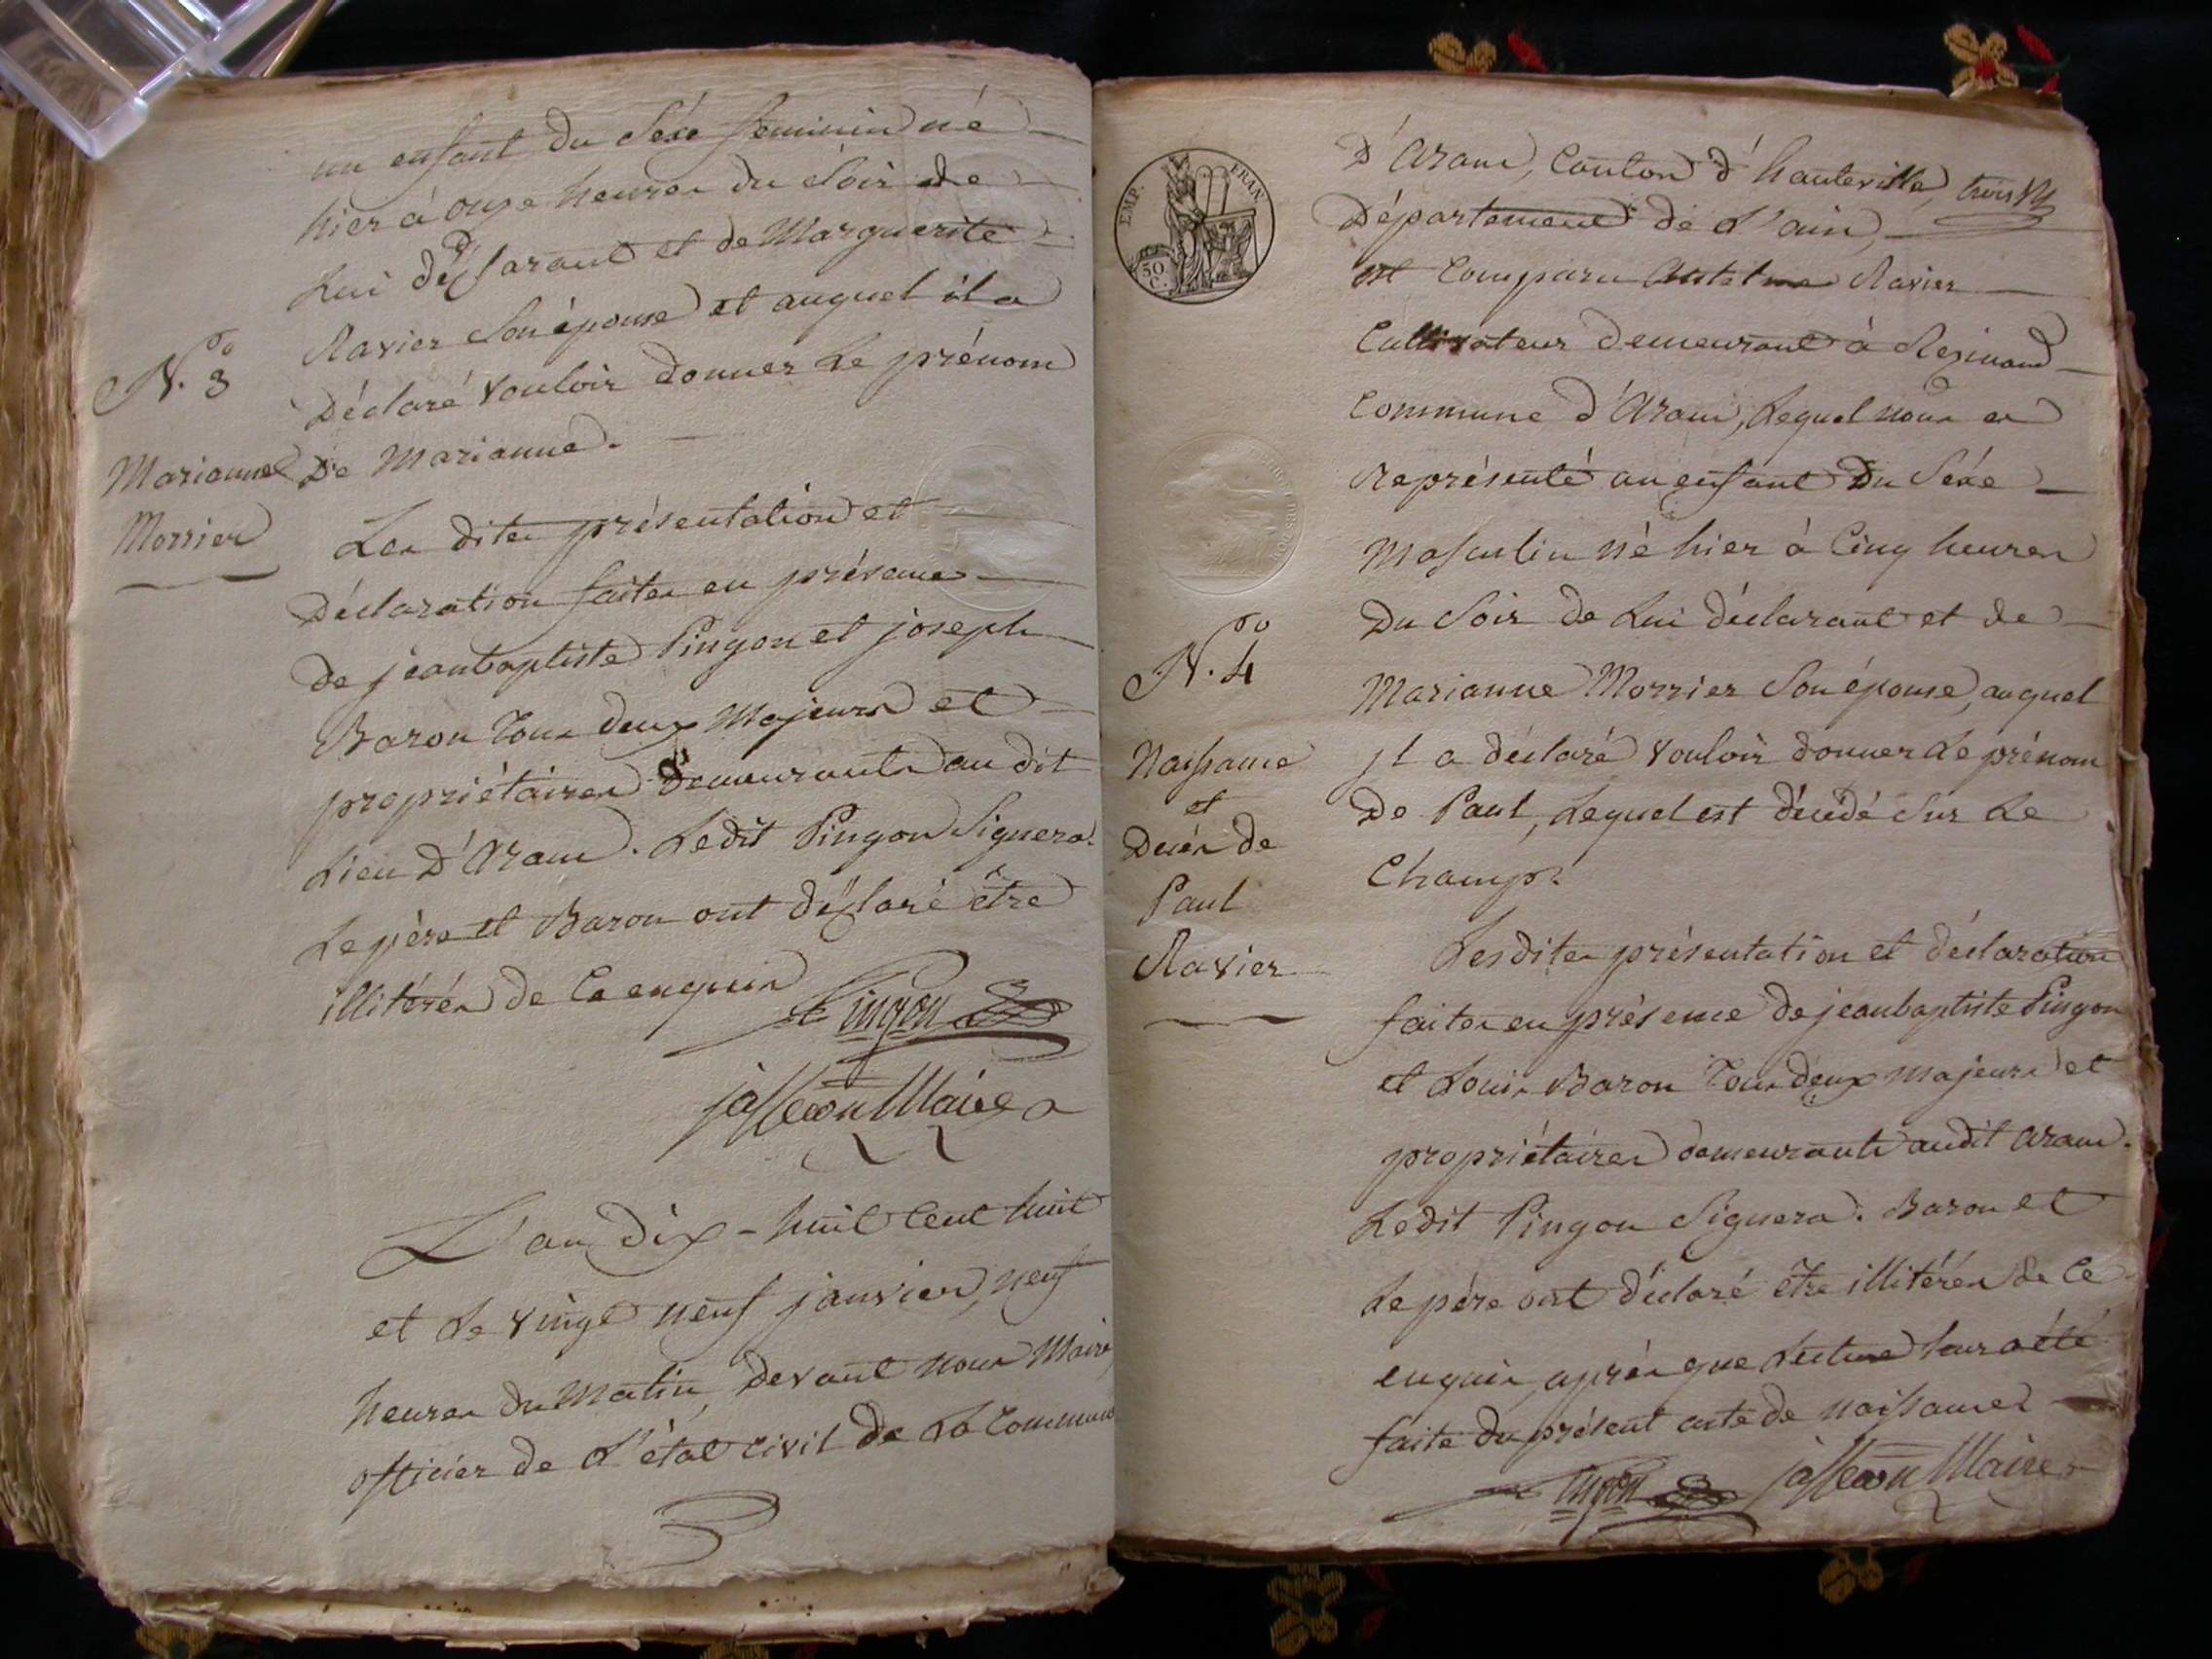 un enfant du Séxe feminin né
hier à onze heures du soir de
lui déclarant et de Marguerite
Ravier son épouse et auquel il a
Déclaré vouloir donner le prénom
De Marianne.
N.º 3
Marianne
Morrier
Les dites présentation et
Déclaration faites en présence
de jeanbaptiste Pingon et joseph
Baron tous deux Majeurs et
propriétaires Demeurants au dit
lieu D'Aranc. Ledit Pingon Signera.
le père et Baron ont déclaré être
illitérés de ce enquis
Pingon
jasseron Maire
L'an dix-huit cent huit
et le vingt neuf janvier, neuf
heures du Matin, devant nous Maire
officier de l'état civil de la commune
EMP. FRAN
50 C.
D'Aranc, Canton d'hauteville, trois
Département de l'ain,
est comparu Antelme Ravier
Cultivateur Demeurant à Resinand
Commune d'Aranc, lequel nous a
Représenté un enfant Du Séxe
Masculin né hier à Cinq heures
Du Soir de lui déclarant et de
Marianne Morrier Son épouse, auquel
jl a déclaré vouloir donner le prénom
De Paul, lequel est décédé sur le
Champ.
N.º 4
Naissance
et
Decès de
Paul
Ravier
Lesdites présentation et déclaration
faites en présence de jeanbaptiste Pingon
et Louis Baron tous deux majeurs et
propriétaires demeurants audit aranc.
Ledit Pingon Signera. Baron et
le père ont déclaré être illitérés de ce
enquis, après que lecture leur a été
faite du présent acte de naissance
Pingon jasseron Maire